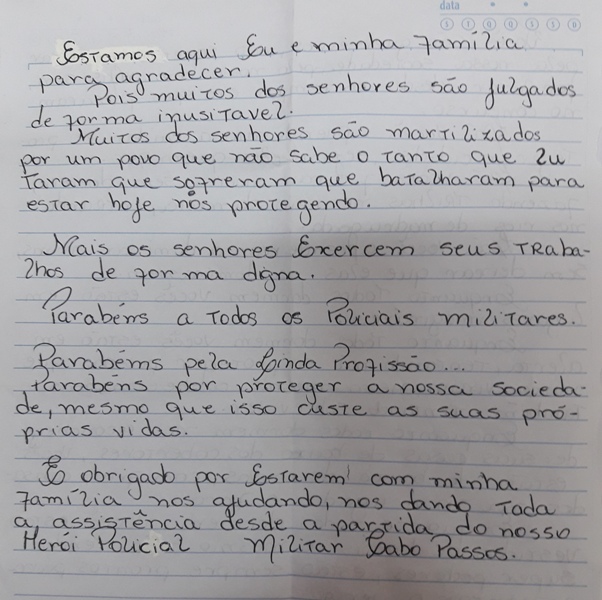 data
S T Q Q S S D
Estamos aqui Eu e minha família
para agradecer.
Pois muitos dos senhores são julgados
de forma inusitavel.
Muitos dos senhores são martilizados
por um povo que não sabe o tanto que lu
taram que sofreram que batalharam para
estar hoje nós protegendo.
Mais os senhores Exercem seus traba-
lhos de forma digna.
Parabéns a todos os Policiais militares.
Parabéms pela Linda Profissão...
Parabéns por proteger a nossa socieda-
de, mesmo que isso custe as suas pró-
prias vidas.
E obrigado por Estarem com minha
família nos ajudando, nos dando toda
a, assistência desde a partida do nosso
Herói Policial Militar Cabo Passos.